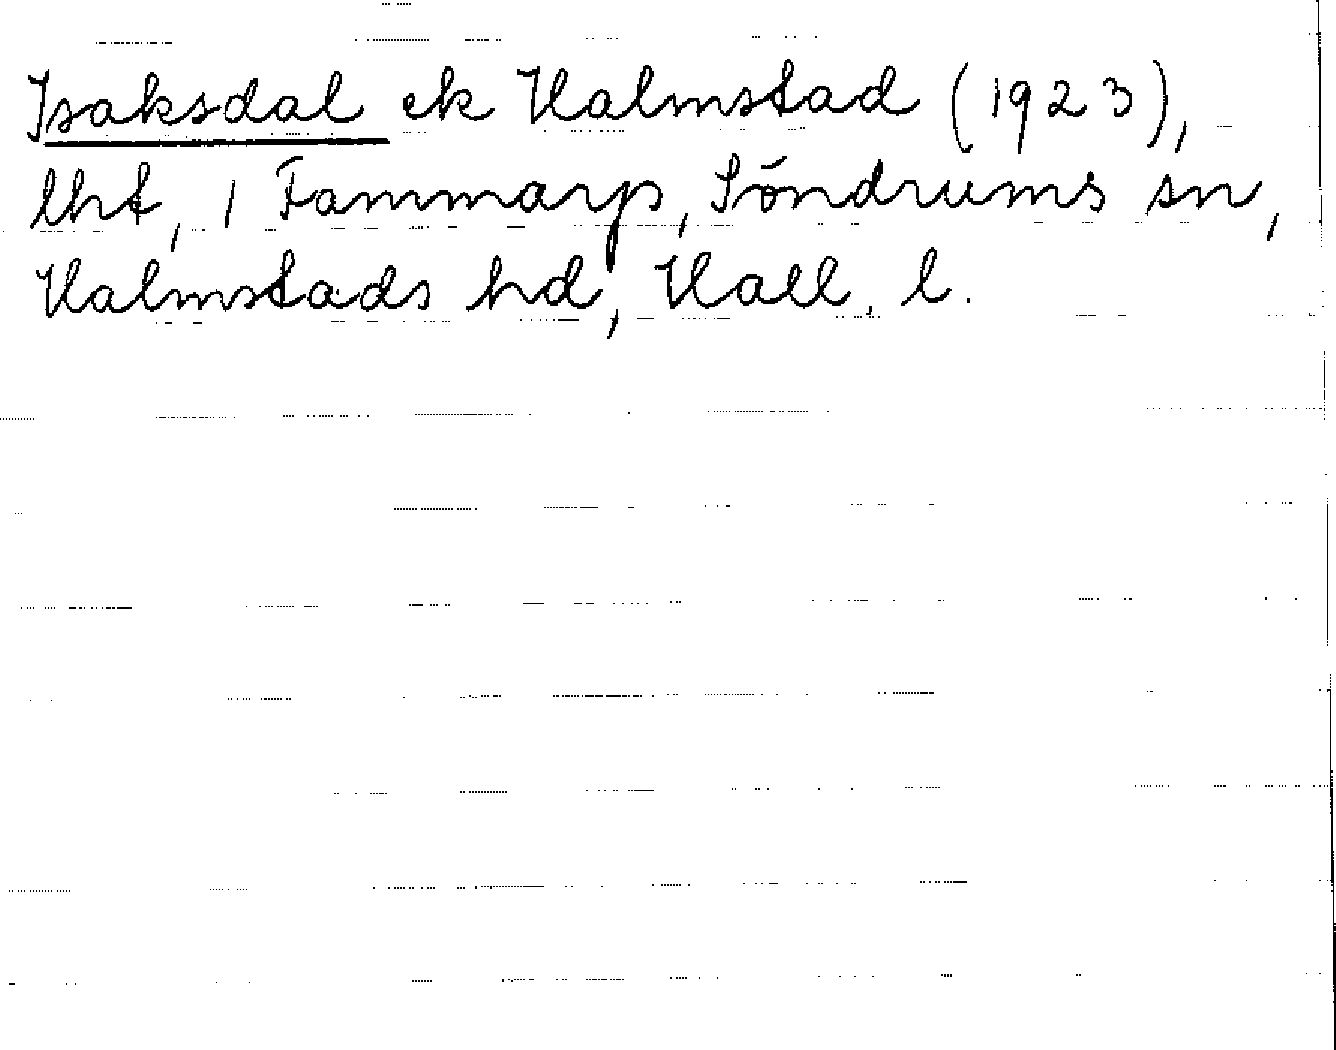 Isaksdal ek Halmstad (1923),
lht, 1 Fammarp, Söndrums sn,
Halmstads hd, Hall. l.